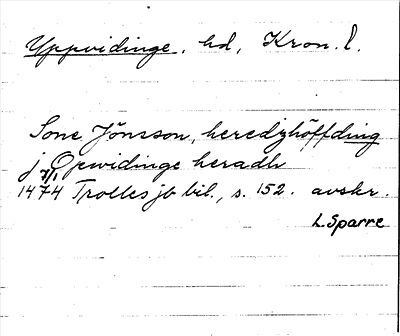 Uppvidinge, hd, Kron. l.
Sone Jönsson, heredzhöffding
j Opwidinge heradh
1474 7/1 Trolles jb bil., s. 152. avskr.
L. Sparre